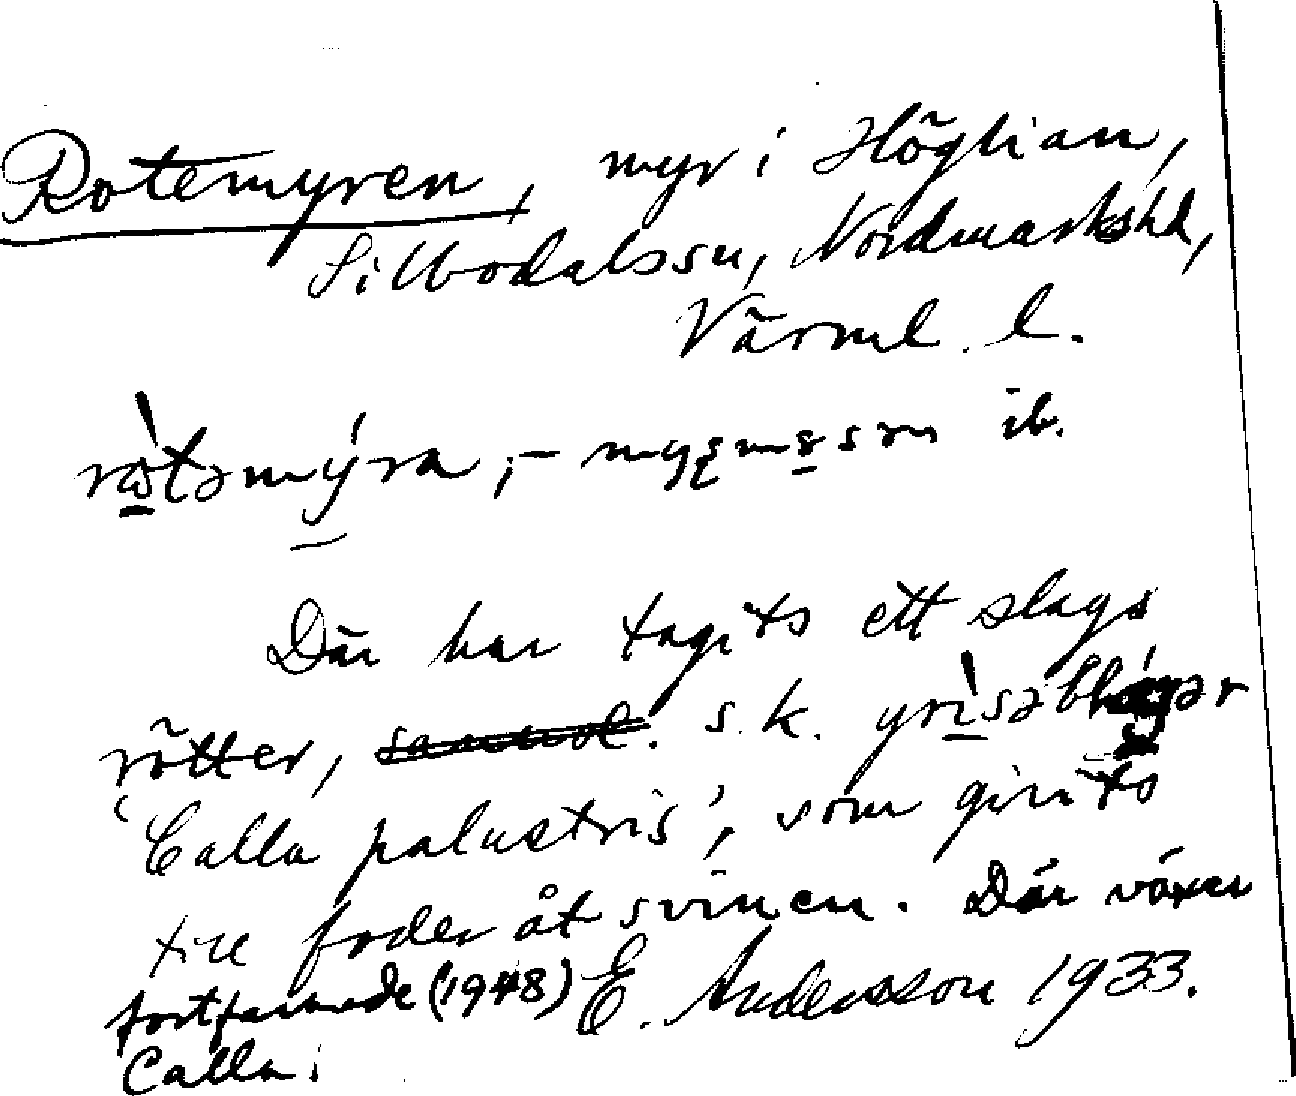 Rotemyren, myr i Höglian,
Silbodalssn, Nordmarkshd,
Värml. l.
ib.
Där har tagits ett slags
rötter, s.k.
'Calla palustris', som givits
till foder åt svinen. Där växer
fortfarande (1948) E. Andersson 1933.
Calla.